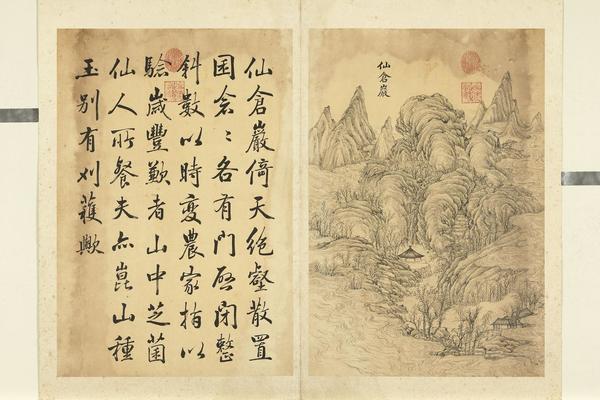 仙倉巖
仙倉巖倚天絶壑散置
囷倉〻名有門啓閉整
斜數以時變農家指以
驗歲豐歉者山中芝菌
仙人所餐夫亦崑山種
玉別有刈穫歟